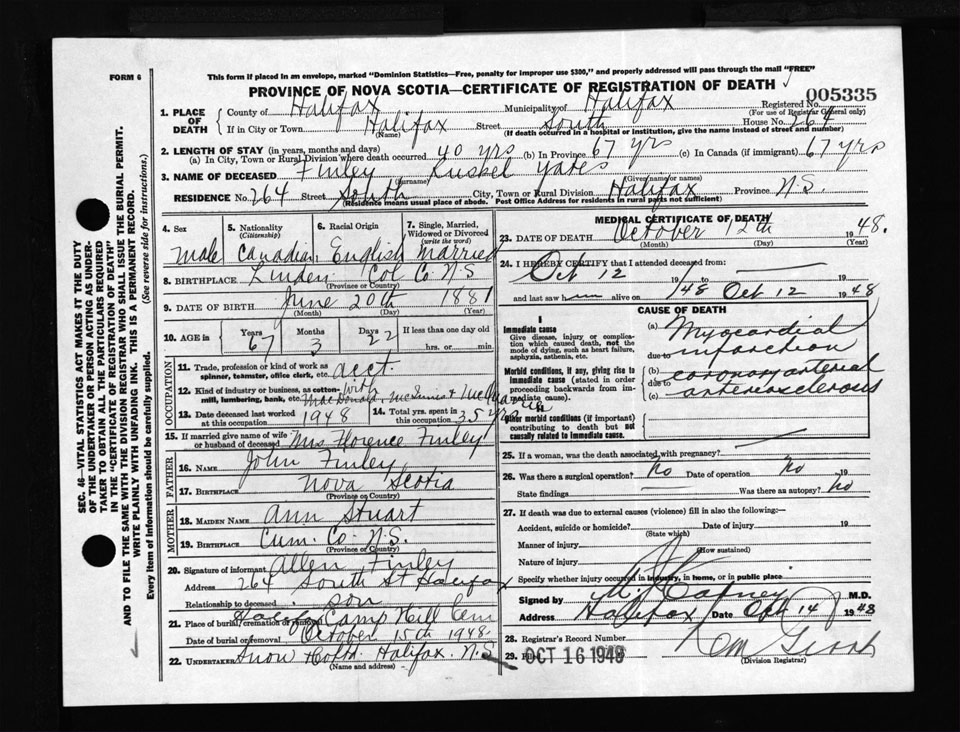 FORM 6
This form if placed in an envelope, marked "Dominion Statistics—Free, penalty for improper use $300," and properly addressed will pass through the mail "FREE"
PROVINCE OF NOVA SCOTIA—CERTIFICATE OF REGISTRATION OF DEATH
005335
1. PLACE OF DEATH
County of Halifax Municipality of Halifax Registered No.
(For use of Registrar General only)
If in City or Town Halifax Street South House No. 264
(Name) (If death occurred in a hospital or institution, give the name instead of street and number)
2. LENGTH OF STAY (in years, months and days)
(a) In City, Town or Rural Division where death occurred 40 yrs (b) In Province 67 yrs (c) In Canada (if immigrant) 67 yrs
3. NAME OF DECEASED Finley Yates
(Surname) (Given name or names)
RESIDENCE No. 264 Street South City, Town or Rural Division Halifax Province N.S.
(Residence means usual place of abode. Post Office Address for residents in rural parts not sufficient)
4. Sex Male
5. Nationality (Citizenship) Canadian
6. Racial Origin English
7. Single, Married, Widowed or Divorced (write the word) Married
8. BIRTHPLACE Linden Col Co N.S
(Province or Country)
9. DATE OF BIRTH June 20th 1881
(Month) (Day) (Year)
10. AGE in Years 67 Months 3 Days 22 If less than one day old
hrs. or min.
OCCUPATION
11. Trade, profession or kind of work as spinner, teamster, office clerk, etc. acct.
12. Kind of industry or business, as cotton-mill, lumbering, bank, etc. with MacDonald, McInnis & McQuarrie
13. Date deceased last worked at this occupation 1948
14. Total yrs. spent in this occupation 35 yrs
15. If married give name of wife or husband of deceased Mrs Florence Finley
FATHER
16. Name John Finley
17. Birthplace Nova Scotia
(Province or Country)
MOTHER
18. Maiden Name Ann Stuart
19. Birthplace Cum. Co. N.S.
(Province or Country)
20. Signature of informant Allen Finley
Address 264 South St Halifax
Relationship to deceased son
21. Place of burial, cremation or removal Camp Hill Cem
Date of burial or removal October 15th 1948
22. Undertaker Snow Halifax. N.S
(Name and address)
MEDICAL CERTIFICATE OF DEATH
23. DATE OF DEATH October 12th 1948.
(Month) (Day) (Year)
24. I HEREBY CERTIFY that I attended deceased from:
Oct 12 1948 to
and last saw h alive on Oct 12 1948
CAUSE OF DEATH
I
Immediate cause
Give disease, injury or complication which caused death, not the mode of dying, such as heart failure, asphyxia, asthenia, etc.
(a) Myocardial infarction
due to
Morbid conditions, if any, giving rise to immediate cause (stated in order proceeding backwards from immediate cause).
(b) coronary arterial
due to
(c) arteriosclerosis
II
Other morbid conditions (if important) contributing to death but not causally related to immediate cause.
25. If a woman, was the death associated with pregnancy?
26. Was there a surgical operation? No Date of operation No 19
State findings Was there an autopsy? No
27. If death was due to external causes (violence) fill in also the following:—
Accident, suicide or homicide? Date of injury 19
(State which)
Manner of injury
(How sustained)
Nature of injury
Specify whether injury occurred in industry, in home, or in public place
Signed by M.D.
Address Halifax Date Oct 14 1948
28. Registrar's Record Number
29. Filed OCT 16 1948
(Division Registrar)
SEC. 46—VITAL STATISTICS ACT MAKES IT THE DUTY
OF THE UNDERTAKER OR PERSON ACTING AS UNDER-
TAKER TO OBTAIN ALL THE PARTICULARS REQUIRED
IN THE "CERTIFICATE OF REGISTRATION OF DEATH"
AND TO FILE THE SAME WITH THE DIVISION REGISTRAR WHO SHALL ISSUE THE BURIAL PERMIT.
WRITE PLAINLY WITH UNFADING INK. THIS IS A PERMANENT RECORD.
Every item of information should be carefully supplied. (See reverse side for instructions.)